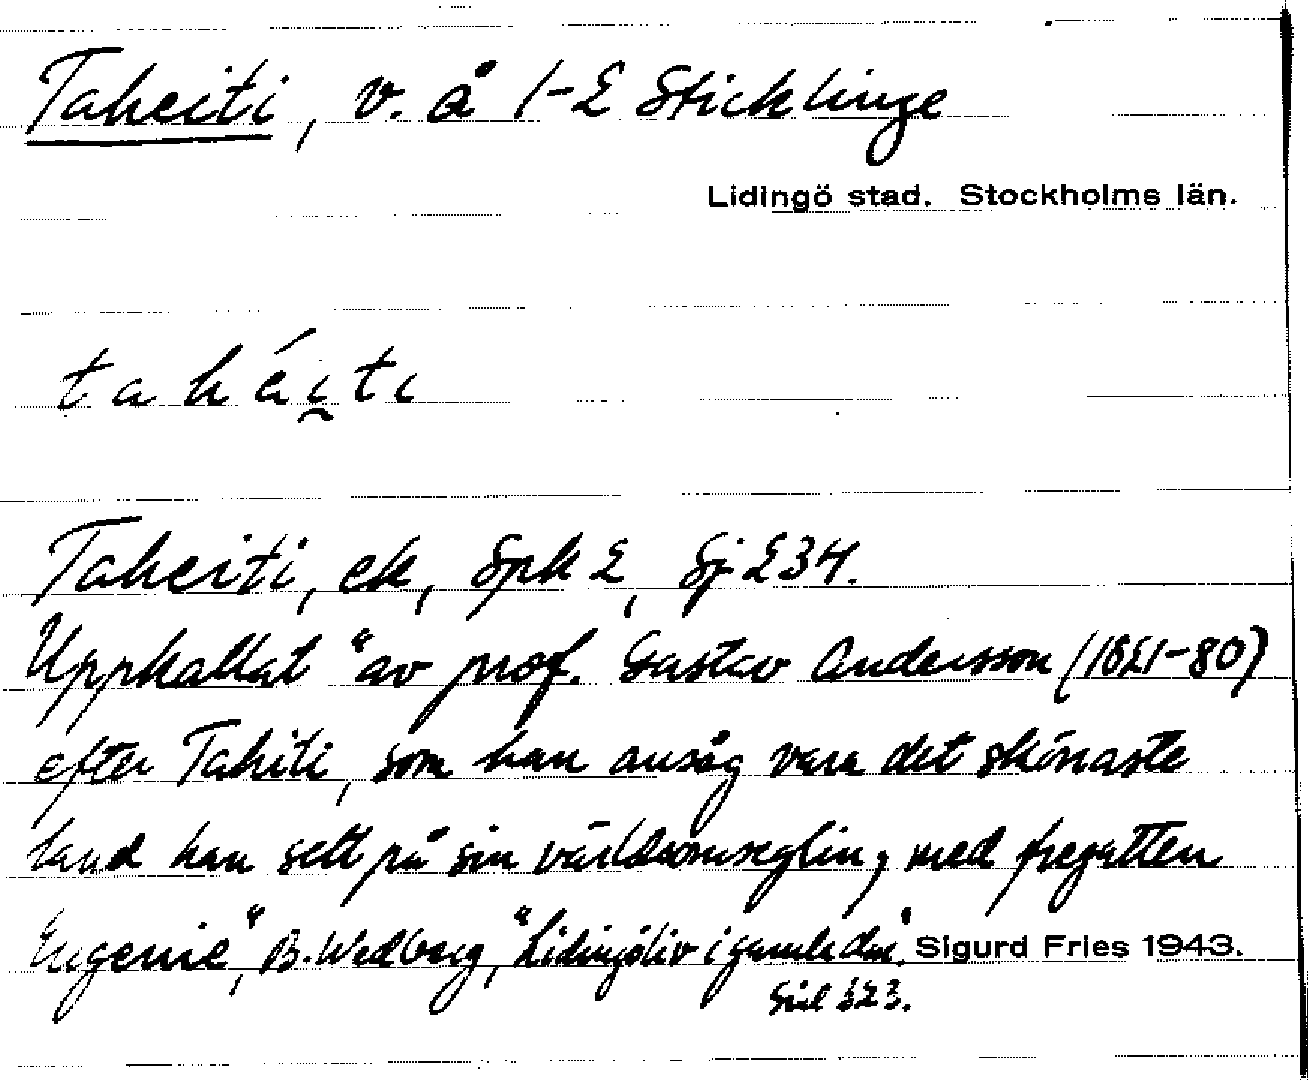 Taheiti, v. å 1-2 Sticklinge
Lidingö stad. Stockholms län.
tahéi̯ti
Taheiti, ek, Spk 2, Sj 234.
Uppkallat "av prof. Gustav Andersson (1821-80)
efter Tahiti, som han ansåg vara det skönaste
land han sett på sin världsomseglin, med fregatten
Eugenie", B. Wedberg, "Lidingöliv i gamla dar".
Sigurd Fries 1943.
323.